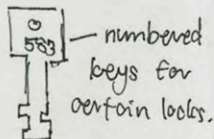 583
numbered
keys for
certain locks.